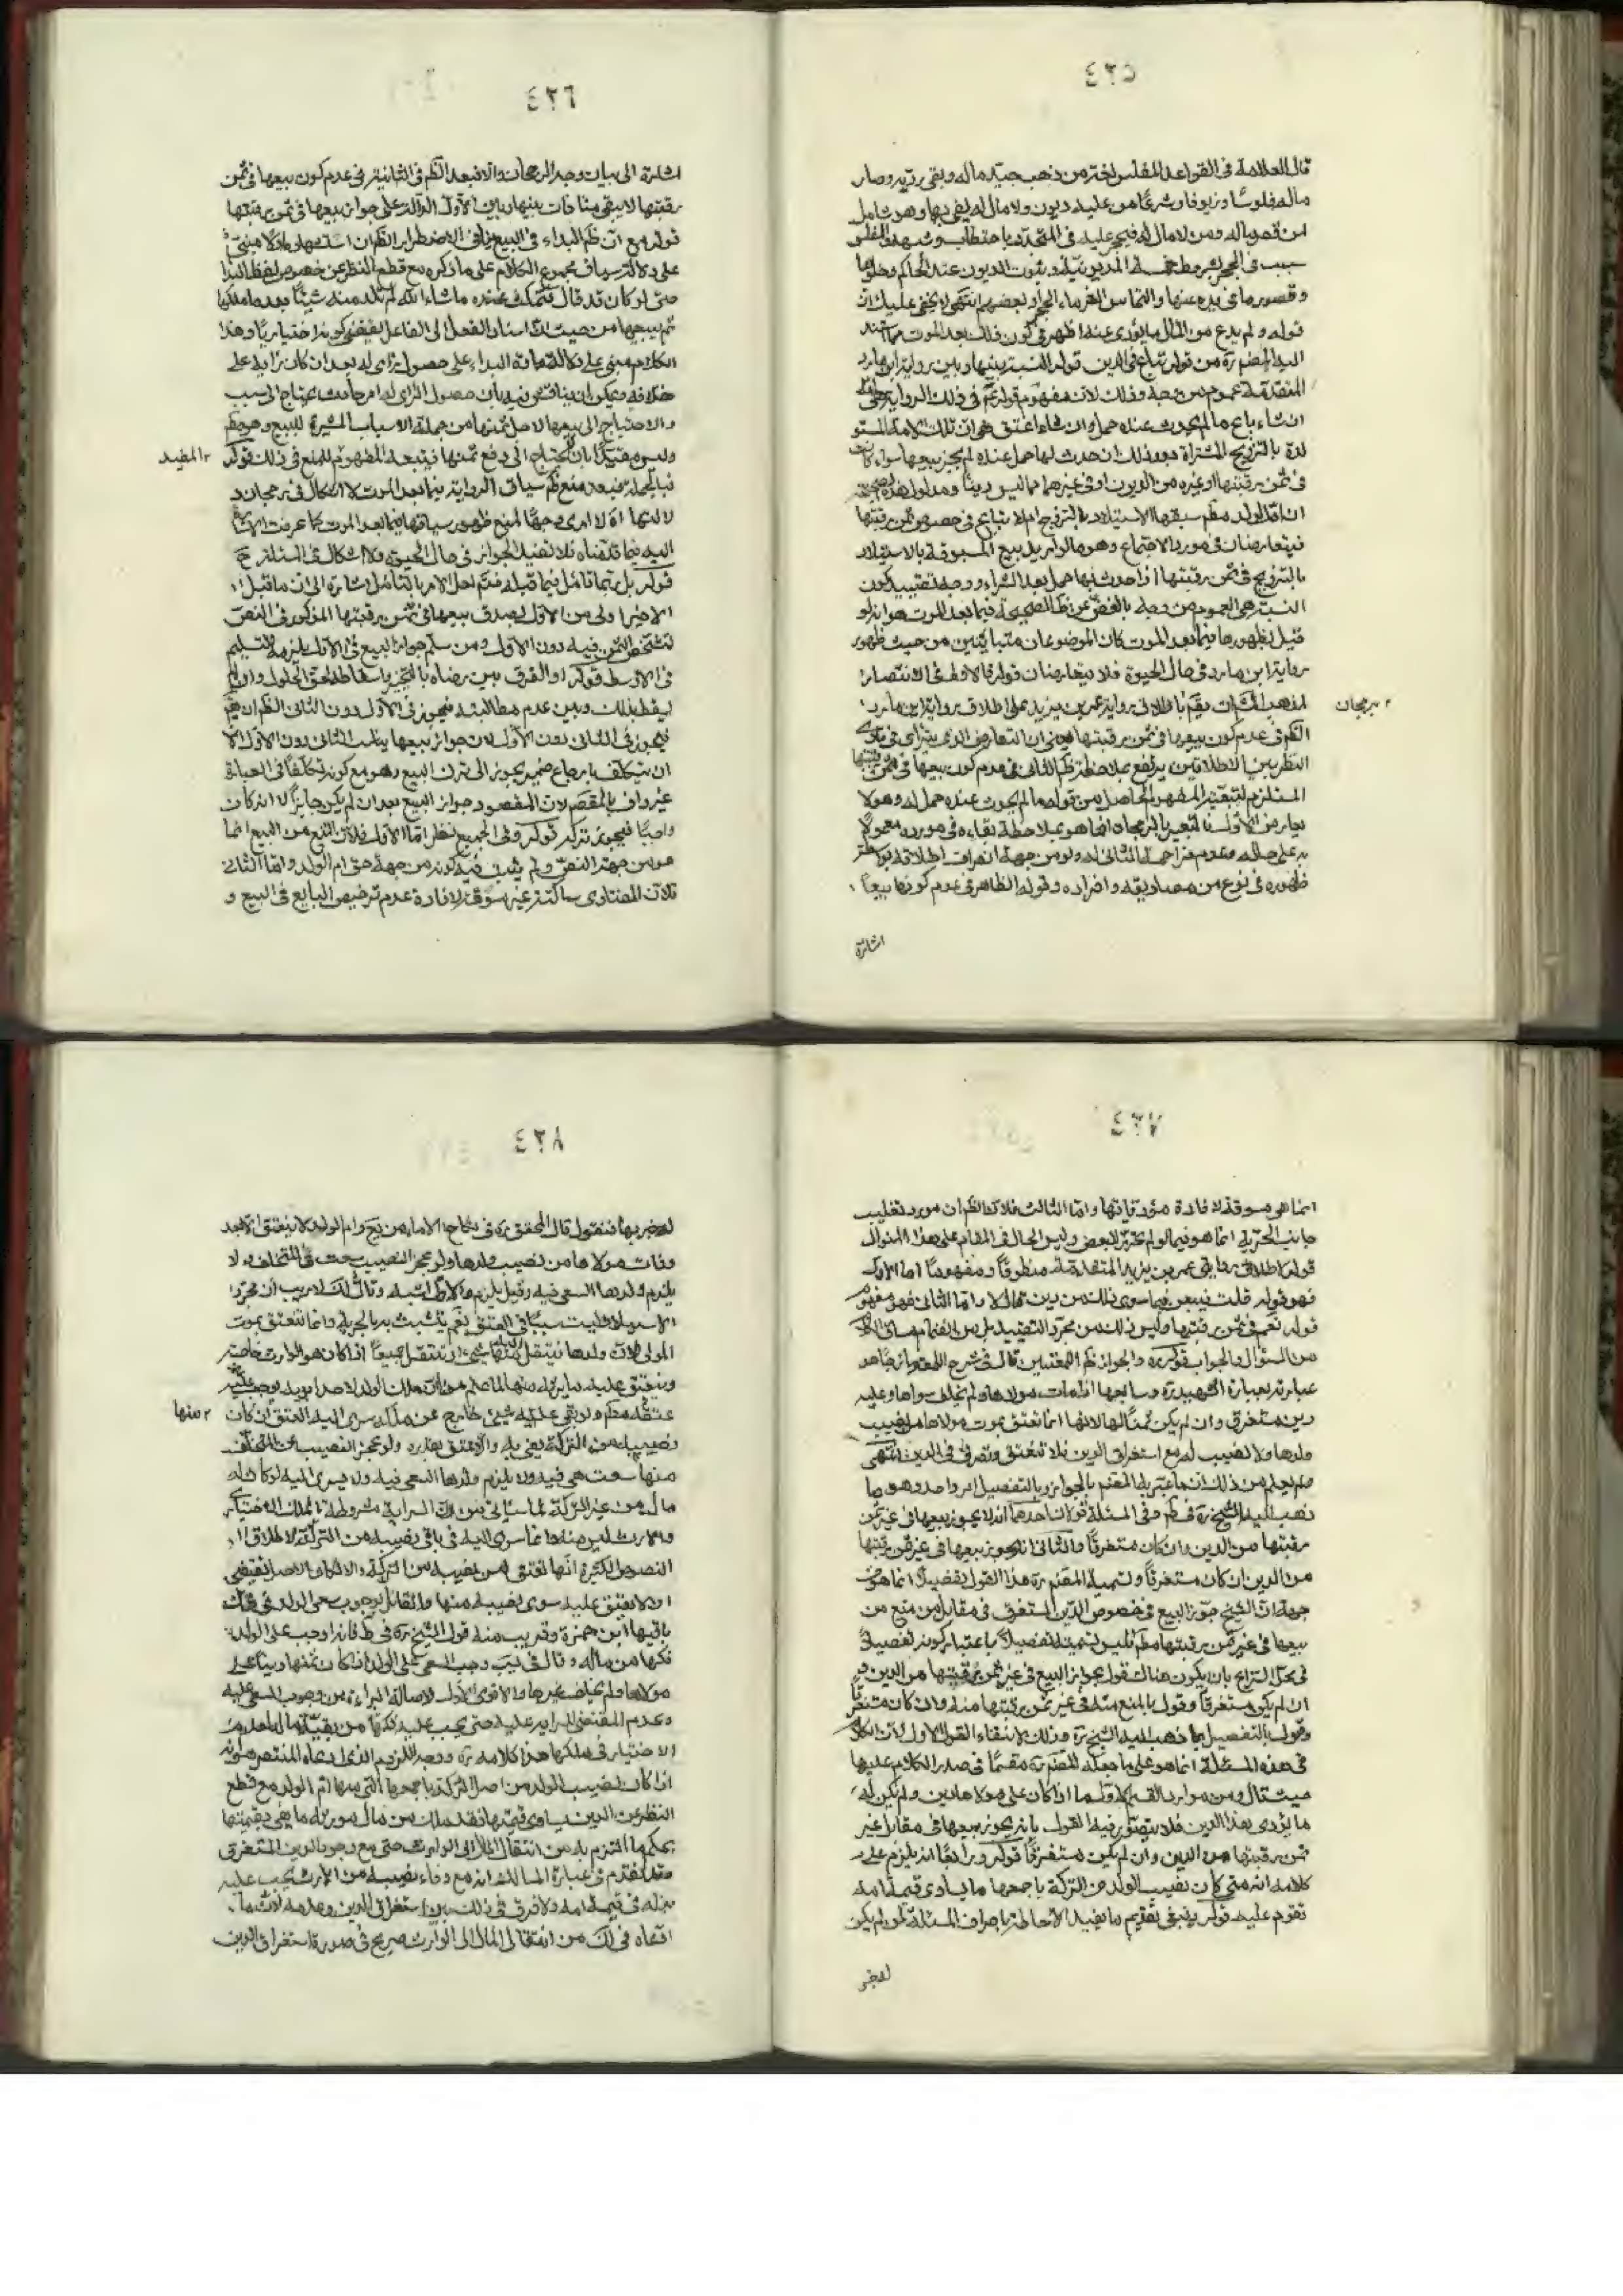 ٤٢٥
قال العلامة في القواعد المفلس لغة من ذهب جيد ماله وبقي رديه وصار
ماله فلوسا وزيوفا وشرعا من عليه ديون ولا مال له يفي بها وهو شامل
لمن قصر ماله ومن لا مال له فيحجر عليه في المتجدد باحتطاب وشبهه والفلس
سبب في الحجر بشروط خمسة المديونية وثبوت الديون عند الحاكم وحلولها
وقصور ما في يده عنها والتماس الغرماء الحجر او بعضهم انتهى لا يخفى عليك ان
قوله ولم يدع من المال ما يؤدى عنه اظهر في كون ذلك بعد الموت مما استند
اليه المصنف ره من قوله تباع في الدين قوله النسبة بينها وبين رواية ابن مارد
المتقدمة عموم من وجه وذلك لان مفهوم قوله ع في ذلك الرواية هي امته
ان شاء باع ما لم يحدث عنده حمل وان شاء اعتق هو ان تلك الامة المستو
لدة بالتزويج المشتراة بعد ذلك ان حدث لها حمل عنده لم يجز بيعها سواء كانت
في ثمن رقبتها او غيره من الديون او في غيرهما مما ليس دينا ومدلول هذه الصحيحة
ان ام الولد مطلقا سبقها الاستيلاد بالتزويج ام لا تباع في خصوص ثمن رقبتها
فيتعارضان في مورد الاجتماع وهو ما لو اريد بيع المسبوقة بالاستيلاد
بالتزويج في ثمن رقبتها اذا حدث لها حمل بعد الشراء ووجه تعقيب كون
النسبة هي العموم من وجه بالغض عن ظ الصحيحة فيما بعد الموت هو انه لو
قيل بظهورها فيما بعد الموت كان الموضوعان متباينين من حيث ظهور
رواية ابن مارد في حال الحيوة فلا يتعارضان قوله فالاولى في الانتصار
لمذهب المش ان يقم باطلاق رواية عمر بن يزيد على اطلاق رواية ابن مارد
برجحان
الظم في عدم كون بيعها في ثمن رقبتها يعني ان التعارض الذي يترائى في بادى
النظر بين الاطلاقين يرتفع بملاحظة ظم الثاني في عدم كون بيعها في ثمن رقبتها
بيجار من الاول فالتعبير بالرجحان انما هو بملاحظة بقاءه في مورده معمولا
به على حاله وعدم مزاحمة الثاني له ولو من جهة انصراف اطلاقه بواسطة
ظهوره في نوع من مصاديقه وافراده وقوله الظاهر في عدم كونها بيعا
اشارة
٤٢٦
اشارة الى بيان وجه الرجحان والا فبعد الظم في الثانية في عدم كون بيعها في ثمن
رقبتها لا يبقى منافات بينها وبين الاول الدالة على جواز بيعها في ثمن رقبتها
قوله مع ان ظم البداء في البيع ينافي الاضطرار الظم ان استظهار هذا مبني
على دلالة سياق مجموع الكلام على ما ذكره مع قطع النظر عن خصوص لفظ البداء
حتى لو كان قد قال فتمكث عنده ما شاء الله لم تلد منه شيئا بعد ما ملكها
ثم يبيعها من حيث ان اسناد الفعل الى الفاعل يقتضي كونه اختياريا وهذا
الكلام مبني على دلالة مادة البداء على حصول رأي له بعد ان كان رايه على
خلافه ويمكن ان يناقش فيه بان حصول الرأي له امر حادث يحتاج الى سبب
والاحتياج الى بيعها لاجل ثمنها من جملة الاسباب المثيرة للبيع وهو مطلم
وليس مقيدا بان لا يحتاج الى دفع ثمنها فيتبعه المفهوم المنع في ذلك قوله
المفيد
فبالجملة فبعد منع ظم سياق الرواية فيما بعد الموت لا اشكال في رجحان د
لالتها اه لا ارى وجها لمنع ظهور سياقها فيما بعد الموت كما عرفت الاشارة
اليه فيما قدمناه فلا تفيد الجواز في حال الحيوة ولا اشكال في المسئلة ح
قوله بل ربما تامل فيما قبله فتم لعل الامر بالتامل اشارة الى ان ما قبل
الاخير اولى من الاول بصدق بيعها في ثمن رقبتها المذكور في النص
لتشخص الثمن فيه دون الاول ومن سلم جواز البيع في الاول يلزمه التسليم
في الاوسط قوله او الفرق بين رضاه بالتاخير واسقاطه لحق الحلول وان لم
يسقط بذلك وبين عدم مطالبته فيجوز في الاول دون الثاني الظم ان يقم
فيجوز في الثاني دون الاول لان جواز بيعها يناسب الثاني دون الاول الا
ان يتكلف بارجاع ضمير يجوز الى ترك البيع وهو مع كونه تكلفا في العبارة
غير واف بالمقصم لان المقصود جواز البيع بعد ان لم يكن جايزا لا انه كان
واجبا فيجوز تركه قوله وفي الجميع نظر اما الاول فلان المنع من البيع انما
هو من جهة النص ولم يثبت فيه كونه من جهة حق ام الولد واما الثاني
فلان الفتاوى ساكتة غير مسوقة لافادة عدم ترخيص البايع في البيع و
٤٢٧
انما هو مسوقة لافادة مؤدياتها واما الثالث فلان الظم ان مورد تغليب
جانب الحرية انما هو فيما لو تحرر البعض وليس الحال في المقام على هذا المنوال
قوله اطلاق روايتي عمر بن يزيد المتقدمة منطوقا ومفهوما اما الاول
فهو قوله قلت فيبعن فيما سوى ذلك من دين قال لا واما الثاني فهو مفهوم
قوله نعم في ثمن رقبتها وليس ذلك من مجرد التقييد بل من انضمام
من السؤال والجواب قوله ره والجواز ظم اللمعتين قال في شرح اللمعة
عبارته بعبارة الشهيد ره وسابعها اذا مات مولاها ولم يخلف سواها وعليه
دين مستغرق وان لم يكن ثمنا لها لانها انما تعتق بموت مولاها من نصيب
ولدها ولا نصيب له مع استغراق الدين فلا تنعتق وتصرف في الدين انتهى
ذهب اليه الشيخ ره في المسئلة قولان احدهما انه لا يجوز بيعها في غير ثمن
رقبتها من الدين وان كان مستغرقا والثاني انه يجوز بيعها في غير ثمن رقبتها
من الدين ان كان مستغرقا وتسمية المصم ره هذا القول تفصيلا انما هو من
جهة ان الشيخ جوز البيع في خصوص الدين المستغرق في مقابل من منع من
بيعها في غير ثمن رقبتها مطم فليس تسميته تفصيلا باعتبار كونه تفصيلا
في محل النزاع بان يكون هناك قول بجواز البيع في غير ثمن رقبتها من الدين و
ان لم يكن مستغرقا وقول بالمنع منه في غير ثمن رقبتها منه وان كان مستغرقا
وقول بالتفصيل بما ذهب اليه الشيخ ره وذلك لانتفاء القول الاول لان الكلام
في هذه المسئلة انما هو على ما جعله المصم ره مقسما في صدر الكلام عليها
حيث قال ومن موارد القسم الاول ما اذا كان على مولاها دين ولم يكن له
ما يؤدى هذا الدين فلا يتصور فيه القول بانه يجوز بيعها في مقابل غير
ثمن رقبتها من الدين وان لم يكن مستغرقا قوله ورابعا انه يلزم على
كلامه انه متى كان نصيب الولد من التركة باجمعها ما يساوى قيمة امه
تقوم عليه قوله ينبغي تقديم ما يفيد الاحاطة باطراف المسئلة لمن لم يكن
له خبر
٤٢٨
له خبر بها فنقول قال المحقق ره في نكاح الاماء من يع وام الولد لا تنعتق الا بعد
وفات مولاها من نصيب ولدها ولو عجز النصيب سعت في المتخلف ولا
يلزم ولدها السعي فيه وقيل يلزم والاول اشبه وقال في لك لا ريب ان مجرد
الاستيلاد ليس سببا في العتق نعم تتشبث به بالحرية وانما تنعتق بموت
المولى لان ولدها ينتقل اليه منها شيء او تنتقل جميعا اذا كان هو الوارث خاصة
وينعتق عليه ما يرثه منها لما علم من ان ملك الولد لاحد ابويه يوجب
عتقه عليه ولو بقي منها شيء خارج عن ملكه سرى اليه العتق ان كان
منها
نصيبه من التركة يفي به والا عتق بقدره ولو عجز النصيب عن المتخلف
منها سعت هي فيه ولا يلزم ولدها السعي فيه ولا يسرى اليه لو كان له
مال من غير التركة لما سياتي من ان السراية مشروطة بالملك الاختيارى
والارث ليس منه وانما سرى اليه في باقي نصيبه من التركة لاطلاق
النصوص الكثيرة انها تعتق من نصيبه من التركة والا كان الاصل يقتضي
ان لا يعتق عليه سوى نصيبه منها والقائل بوجوب سعي الولد في فك
باقيها ابن حمزة وقريب منه قول الشيخ ره في ط فانه اوجب على الولد
فكها من ماله وقال في يب وجب السعي على الولد اذا كان ثمنها دينا على
مولاها ولم يخلف غيرها والاقوى الاول لاصالة البراءة من وجوب السعي عليه
وعدم المقتضي للسراية عليه حتى يجب عليه فكها من بقية ماله لعدم
الاختيار في ملكها هذا كلامه ره ووجه اللزوم الذي ادعاه المصم ره هو انه
اذا كان نصيب الولد من اصل التركة باجمعها التي منها ام الولد مع قطع
النظر عن الدين يساوى قيمتها فقد ملك من مال مورثه ما يفي بقيمتها
بحكم ما التزم به من انتقال المال الى الوارث حتى مع وجود الدين المستغرق
وقد تقدم في عبارة المسالك انه مع وفاء نصيبه من الارث يجب عليه
بذله في قيمة امه ولا فرق في ذلك بين استغراق الدين وعدمه لان ما
افاده في لك من انتقال المال الى الوارث صريح في صورة استغراق الدين